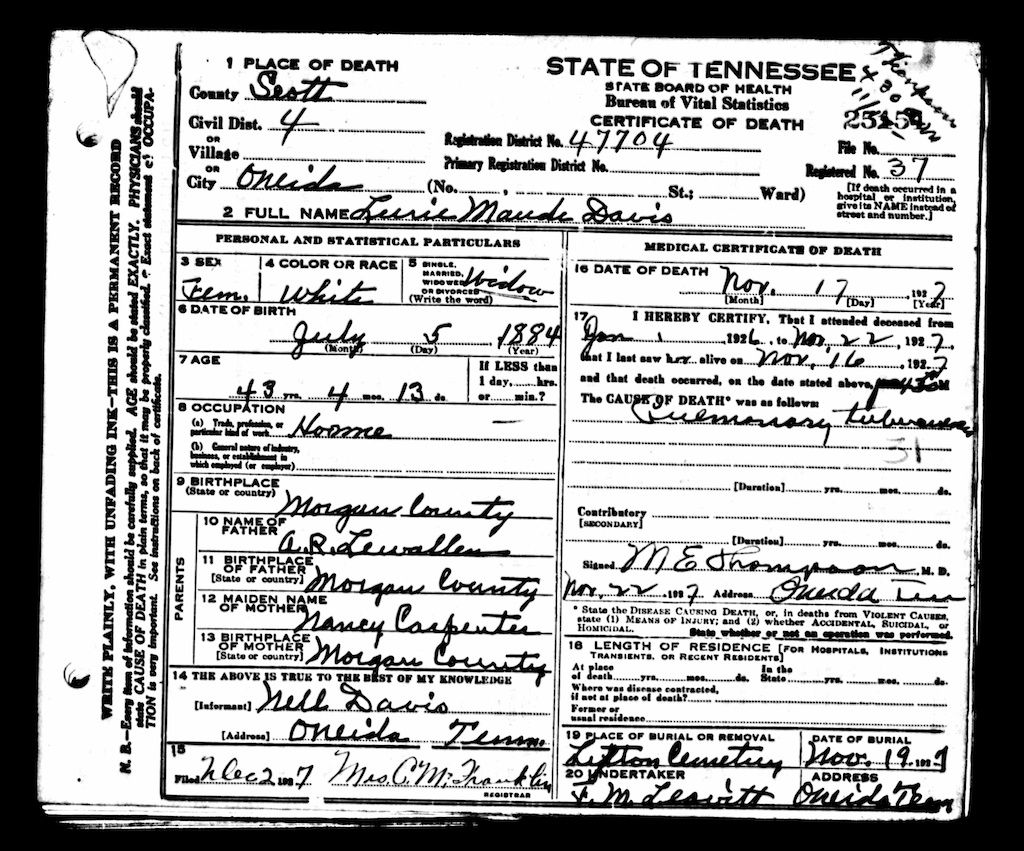 1 PLACE OF DEATH
County Scott
Civil Dist. 4
OR
Village
OR
City Oneida (No. , St.; Ward)
STATE OF TENNESSEE
STATE BOARD OF HEALTH
Bureau of Vital Statistics
CERTIFICATE OF DEATH
Registration District No. 47704
Primary Registration District No.
Thompson
File No.
Registered No. 37
[If death occurred in a
hospital or institution,
give its NAME instead of
street and number.]
2 FULL NAME Lurie Maude Davis
PERSONAL AND STATISTICAL PARTICULARS
3 SEX
Fem.
4 COLOR OR RACE
White
5 SINGLE,
MARRIED,
WIDOWED
OR DIVORCED
(Write the word)
Widow
6 DATE OF BIRTH
July 5 1884
(Month) (Day) (Year)
7 AGE
43 yrs. 4 mos. 13 ds.
If LESS than
1 day, hrs.
or min.?
8 OCCUPATION
(a) Trade, profession, or
particular kind of work Hoome
(b) General nature of industry,
business, or establishment in
which employed (or employer)
9 BIRTHPLACE
(State or country) Morgan County
PARENTS
10 NAME OF
FATHER A.R. Lewallen
11 BIRTHPLACE
OF FATHER
[State or country] Morgan County
12 MAIDEN NAME
OF MOTHER Nancy Carpenter
13 BIRTHPLACE
OF MOTHER
[State or country] Morgan County
14 THE ABOVE IS TRUE TO THE BEST OF MY KNOWLEDGE
[Informant] Nell Davis
[Address] Oneida Tenn.
15
Filed Dec 2, 1927 Mrs. C. M. Franklin
REGISTRAR
MEDICAL CERTIFICATE OF DEATH
16 DATE OF DEATH
Nov. 17, 1927
[Month] [Day] [Year]
17 I HEREBY CERTIFY, That I attended deceased from
Jan 1, 1926, to Nov. 22, 1927,
that I last saw her alive on Nov. 16, 1927
and that death occurred, on the date stated above, M
The CAUSE OF DEATH* was as follows:
Pulmonary tuberculosis
31
[Duration] yrs. mos. ds.
Contributory
[SECONDARY]
[Duration] yrs. mos. ds.
Signed M E Thompson, M. D.
Nov. 22, 1927 Address Oneida Ten
* State the DISEASE CAUSING DEATH, or, in deaths from VIOLENT CAUSES,
state (1) MEANS OF INJURY; and (2) whether ACCIDENTAL, SUICIDAL, or
HOMICIDAL. State whether or not an operation was performed.
18 LENGTH OF RESIDENCE [FOR HOSPITALS, INSTITUTIONS
TRANSIENTS, OR RECENT RESIDENTS]
At place
of death yrs. mos. ds. In the
State yrs. mos. ds.
Where was disease contracted,
if not at place of death?
Former or
usual residence
19 PLACE OF BURIAL OR REMOVAL
Cemetery
DATE OF BURIAL
Nov. 19, 1927
20 UNDERTAKER
F. M. Leavitt
ADDRESS
Oneida Tenn
WRITE PLAINLY, WITH UNFADING INK—THIS IS A PERMANENT RECORD
N. B.—Every item of information should be carefully supplied. AGE should be stated EXACTLY. PHYSICIANS should
state CAUSE OF DEATH in plain terms, so that it may be properly classified. Exact statement of OCCUPA-
TION is very important. See instructions on back of certificate.